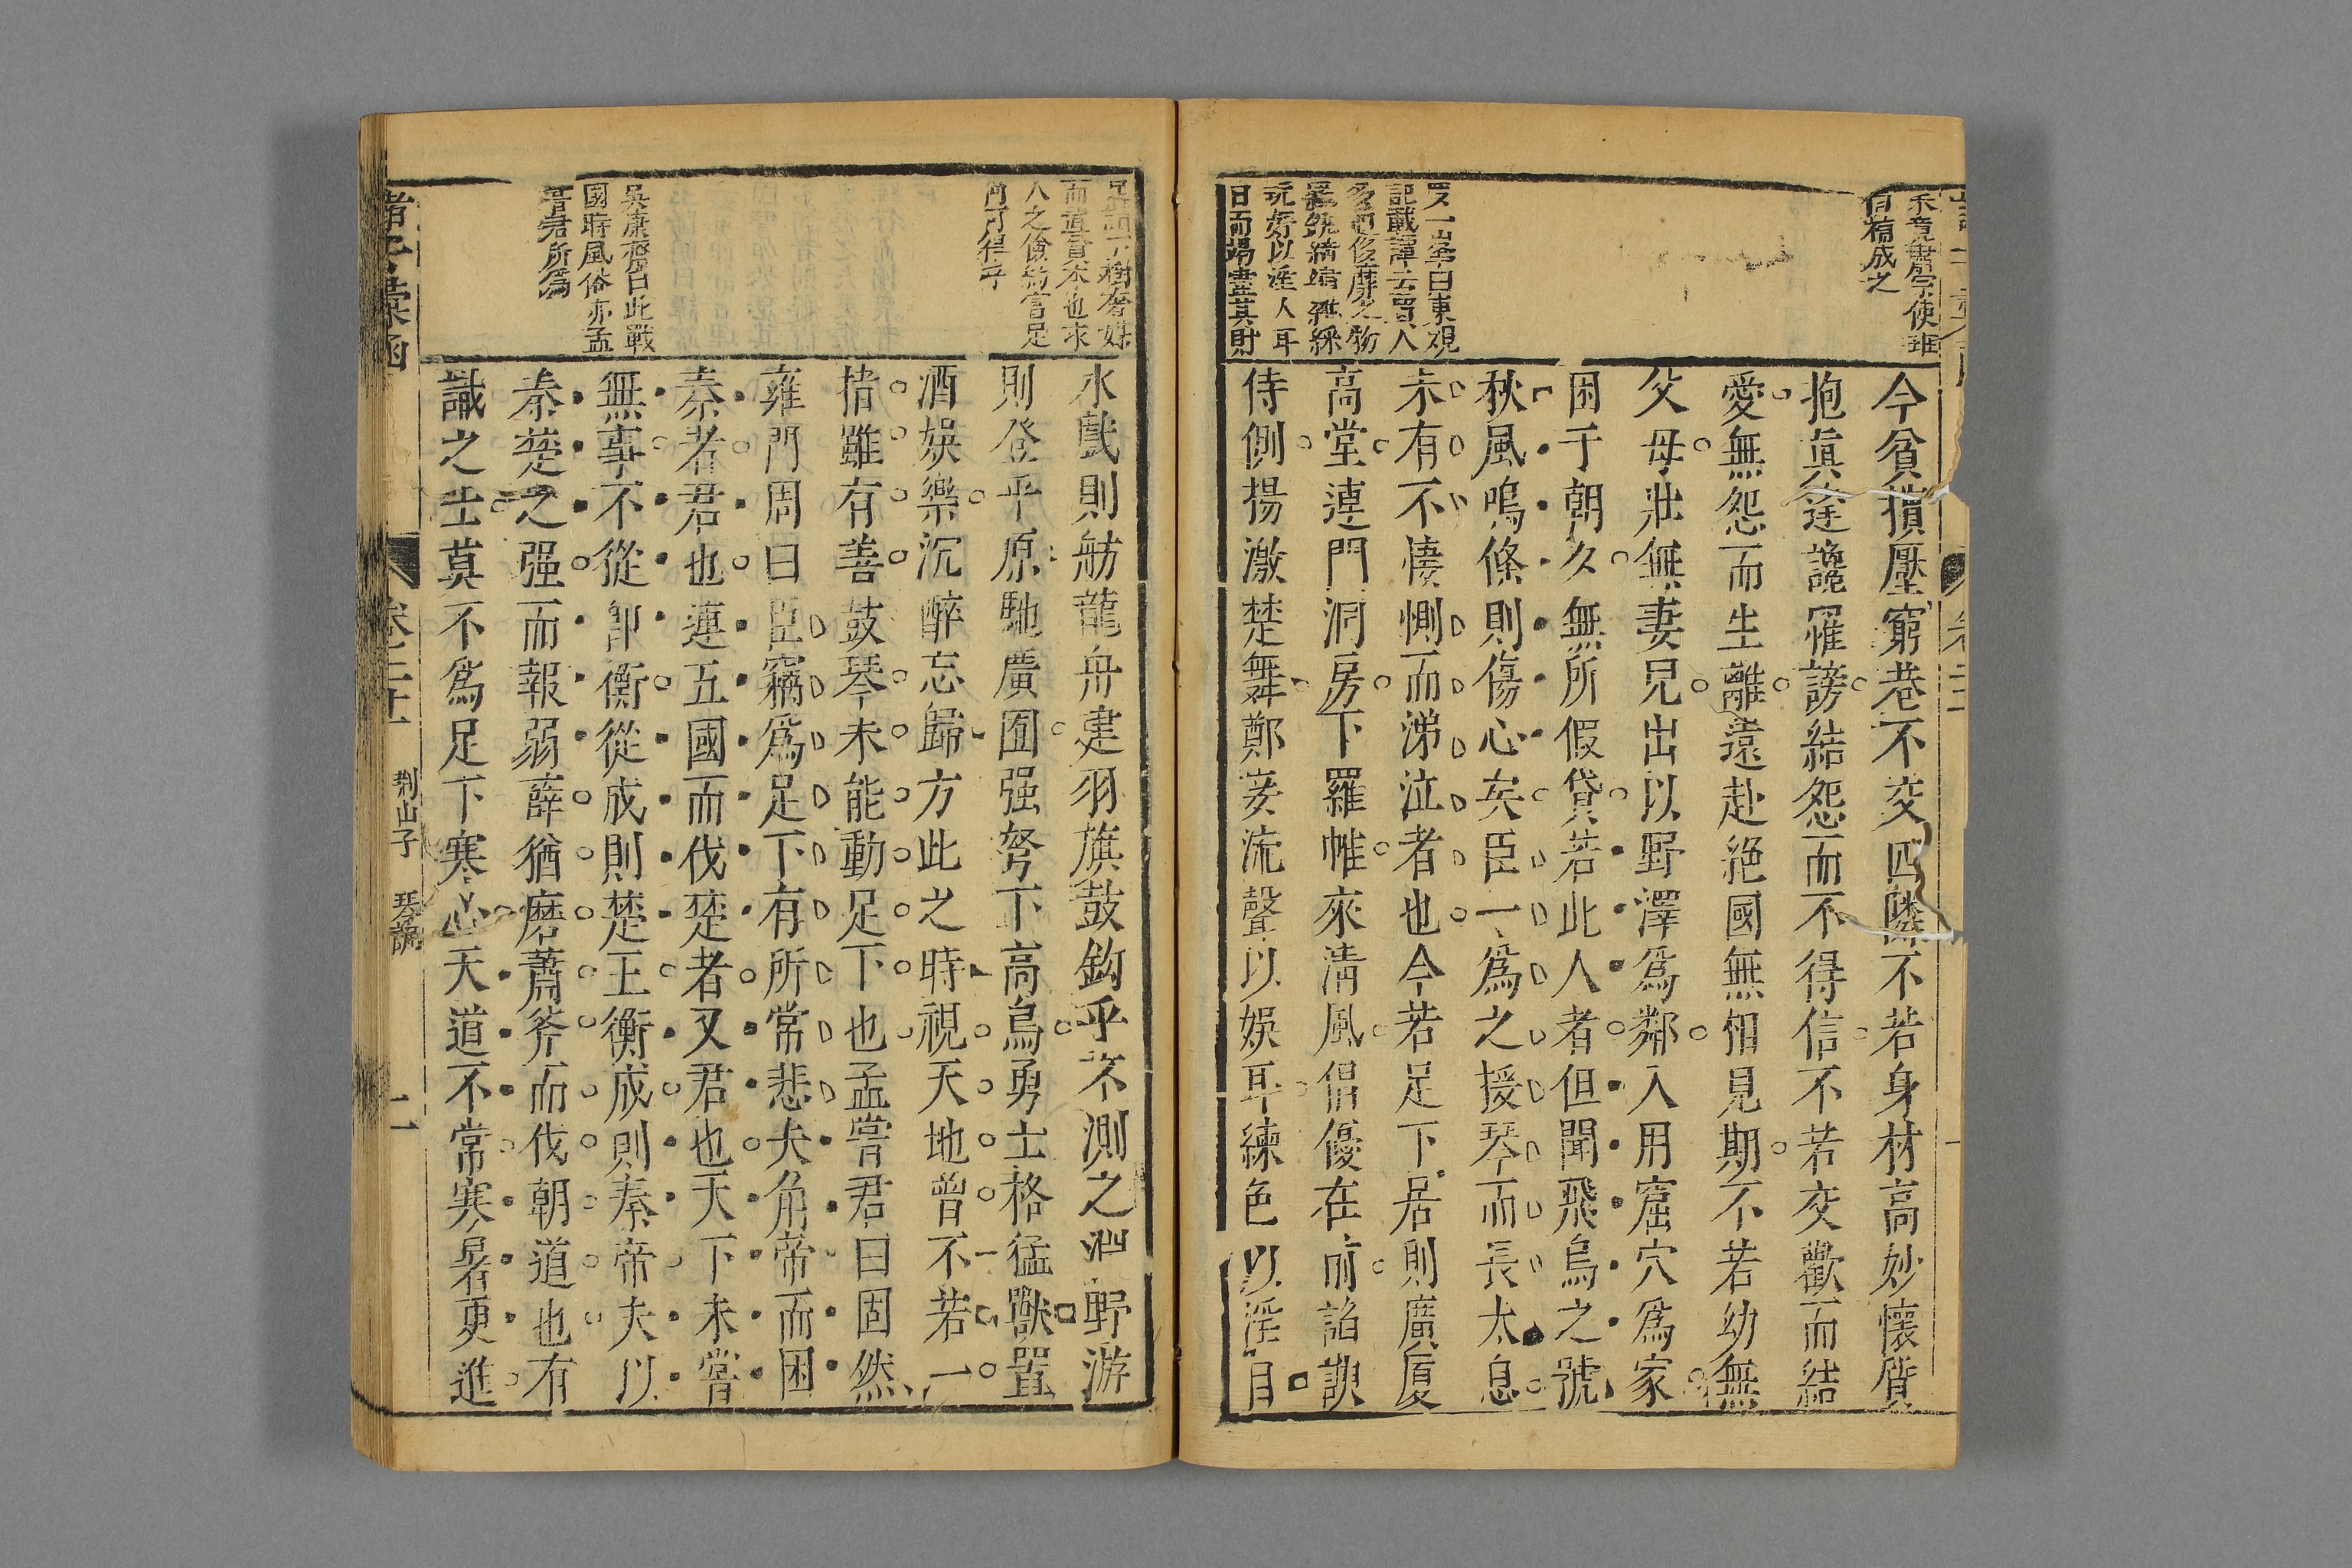 有精成之
今貧擯壓窮巷不交四隣不若身材高妙懷
抱眞逢讒罹謗結怨而不得信不若交歡而結
愛無怨而生離遠赴絕國無相見期不若幼無
父母壯無妻兒出以野澤爲鄰入用窟穴爲家
困于朝夕無所假貸若此人者但聞飛烏之號
秋風鳴條則傷心矣臣一爲之援琴而長太息
未有不悽惻而涕泣者也今若足下居則廣厦
高堂連門洞房下羅帷來淸風倡優在前諂諛
侍側揚激楚舞鄭妾流聲以娛耳練色以淫目
記載譚去
多 侈靡之物
玩好以淫人耳
目而場盡其財
水戲則舫龍舟建羽旗鼓釣乎不測之淵野游
則登平原馳廣囿强弩下高鳥勇士格猛獸置
酒娛樂沉醉忘歸方此之時視天地曾不若一
指雖有善鼓琴未能動足下也孟嘗君曰固然
雍門周曰臣竊爲足下有所常悲夫角帝而困
秦者君也連五國而伐楚者又君也天下未嘗
無事不從卽衡從成則楚王衡成則秦帝夫以
秦楚之强而報弱薛猶磨蕭斧而伐朝道也有
識之士莫不爲足下寒心天道不常寒暑更進
人之儉約言足
吳康齋曰此戰
國時風俗亦孟
嘗君所爲
諸子彙函
荆山子
琴諷
二